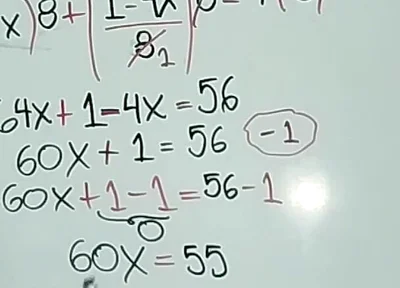 x)8+(1-
8 2
64x+1-4x=56
60x+1=56 -1
60x+1-1=56-1
0
60x=55